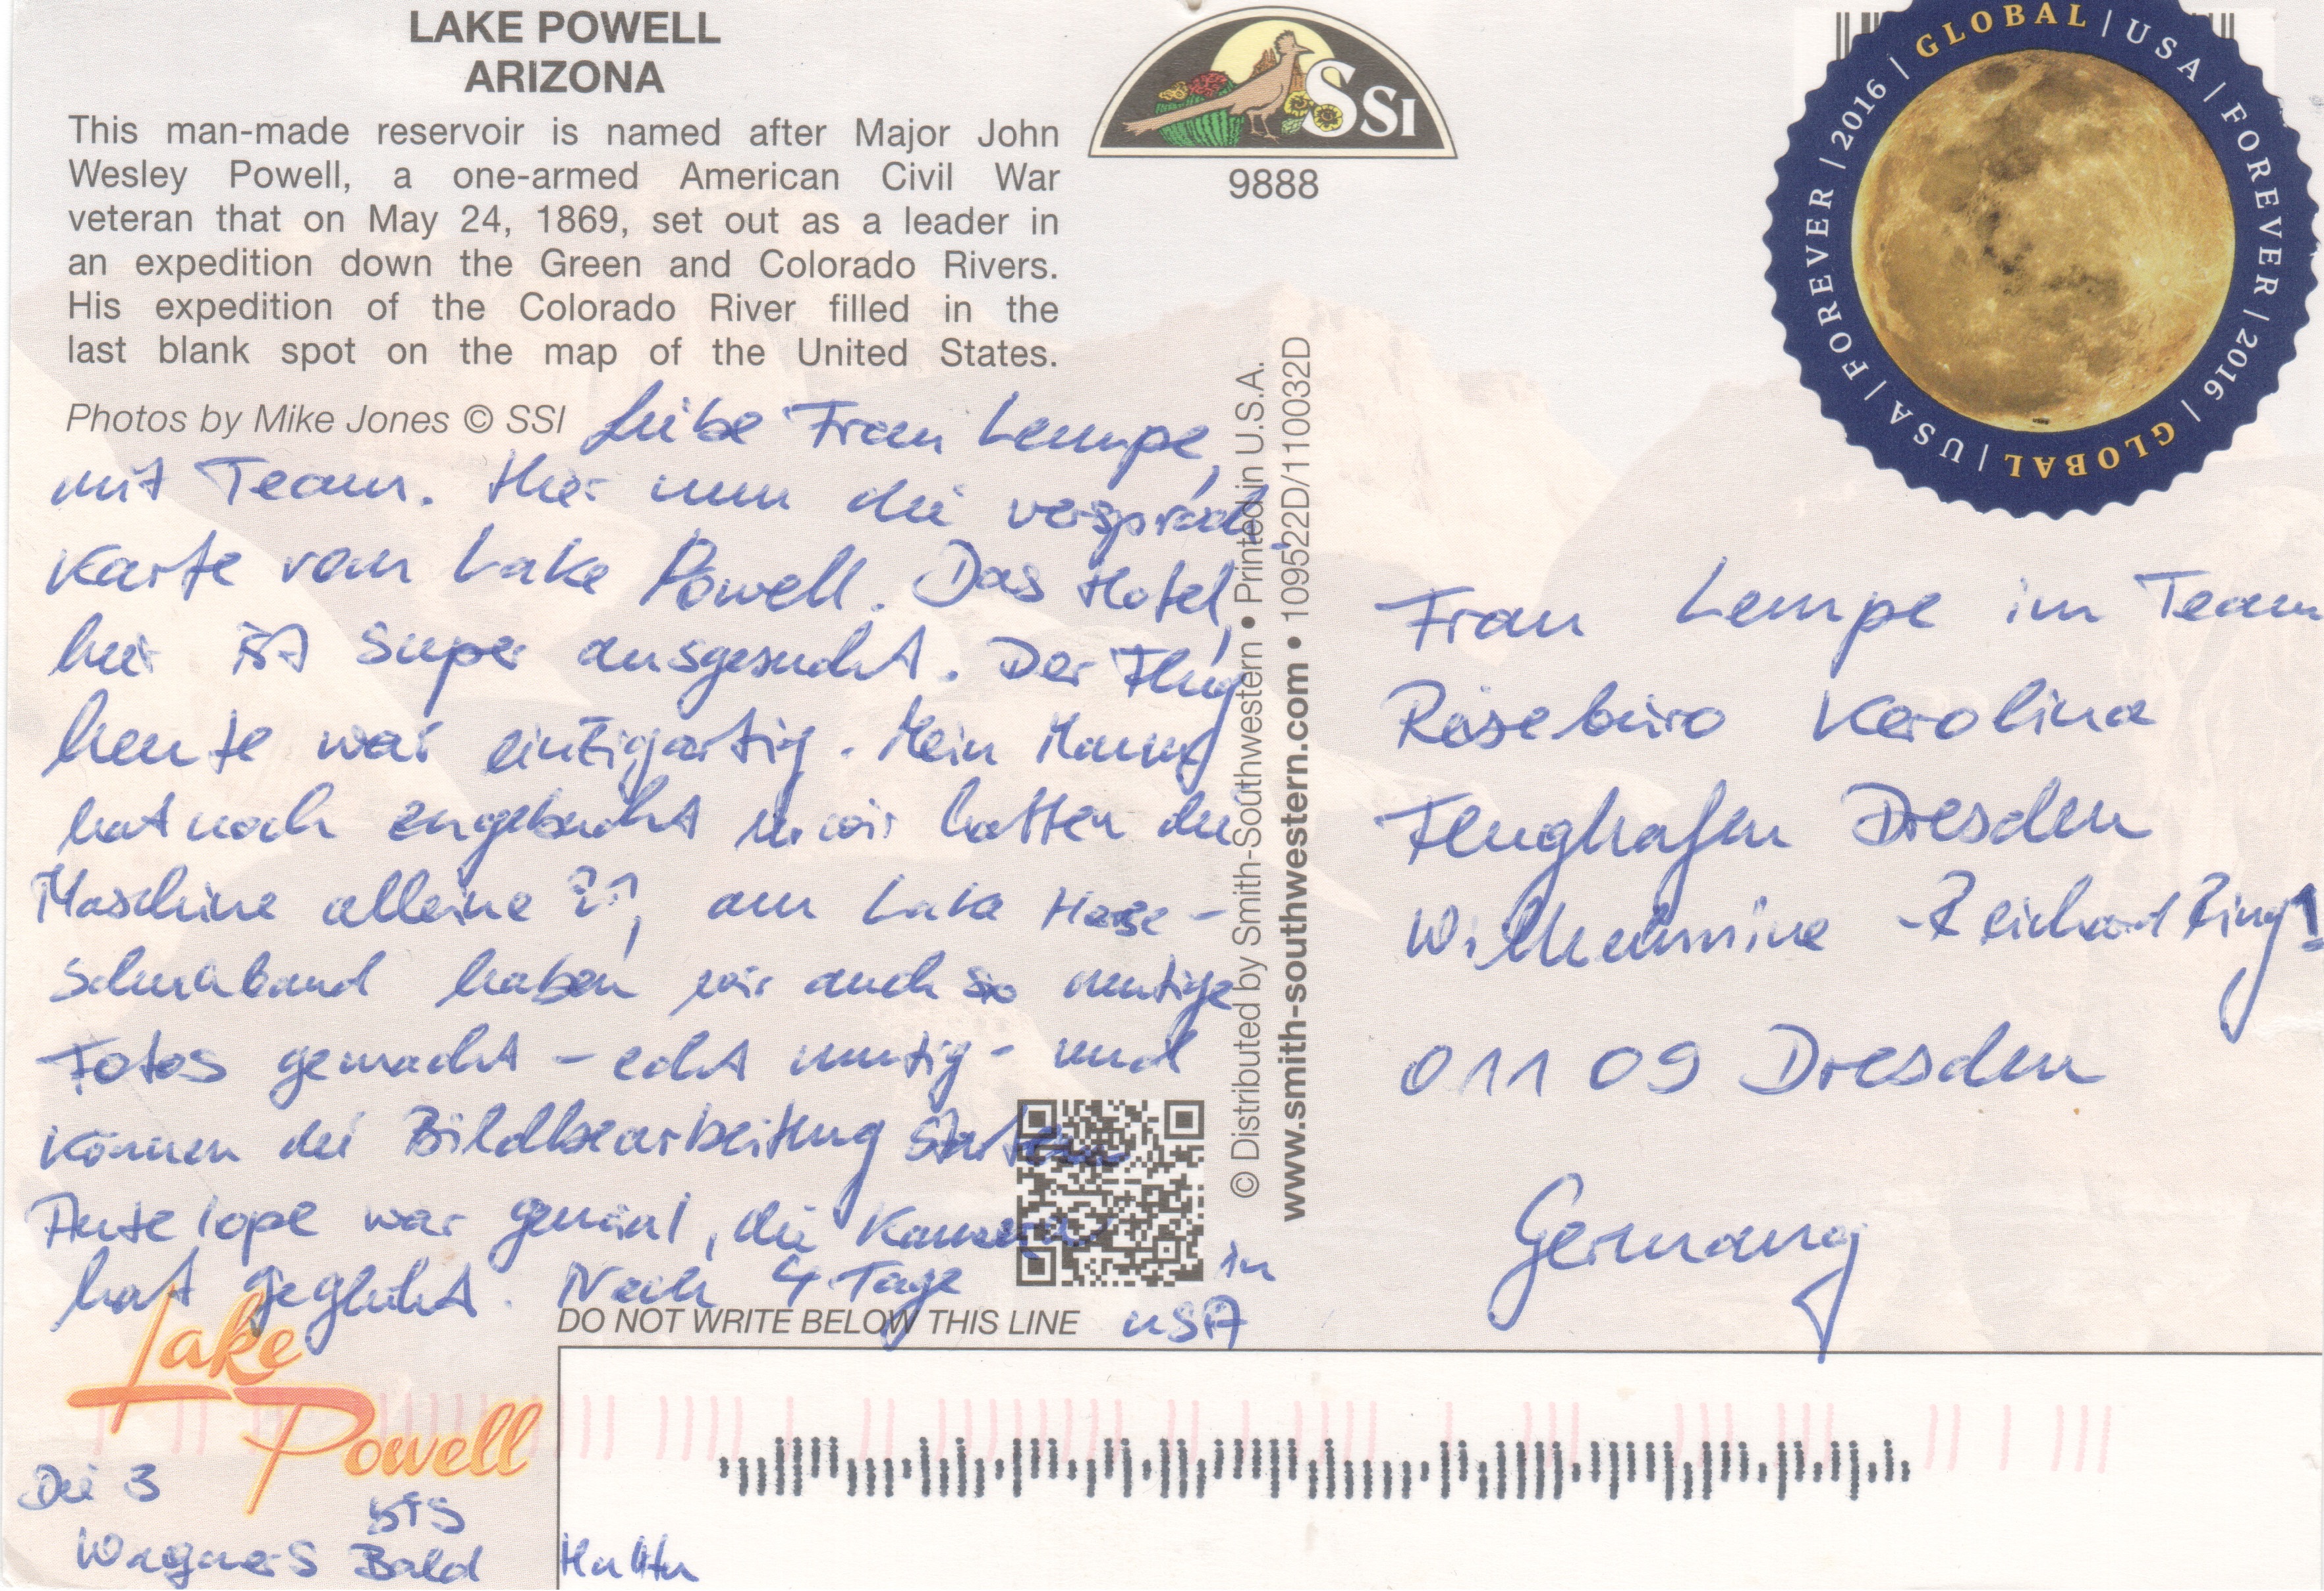 LAKE POWELL
ARIZONA
This man-made reservoir is named after Major John
Wesley Powell, a one-armed American Civil War
veteran that on May 24, 1869, set out as a leader in
an expedition down the Green and Colorado Rivers.
His expedition of the Colorado River filled in the
last blank spot on the map of the United States.
Photos by Mike Jones © SSI
SSI
9888
GLOBAL | USA | FOREVER | 2016 | GLOBAL | USA | FOREVER | 2016 |
Liebe Frau Lempe,
mit Team. Hier nun die versproch.
Karte vom Lake Powell. Das Hotel,
hier ist super ausgesucht. Der Flug
heute war einzigartig. Mein Mann
hat noch eingebucht u. wir hatten die
Maschine alleine am Lake
haben wir auch so mutige
Fotos gemacht – echt mutig – und
können die Bildbearbeitung starten
Antelope war genial, die Kamera
hat geglüht. Noch 4 Tage in
USA
Die 3
Wagners
Bis
Bald
© Distributed by Smith-Southwestern • Printed in U.S.A.
www.smith-southwestern.com • 109522D/110032D
Frau Lempe im Team
Reisebüro Karolina
Flughafen Dresden
Wilhelmine-Reichard Ring 1
01109 Dresden
Germany
DO NOT WRITE BELOW THIS LINE
Lake
Powell